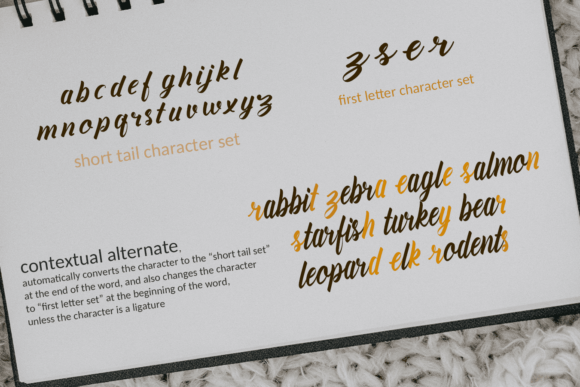 abcdef ghijkl
mnopqrstuvwxyz
short tail character set
z s e r
first letter character set
rabbit zebra eagle salmon
starfish turkey bear
leopard elk rodents
contextual alternate.
automatically converts the character to the “short tail set”
at the end of the word, and also changes the character
to “first letter set” at the beginning of the word,
unless the character is a ligature